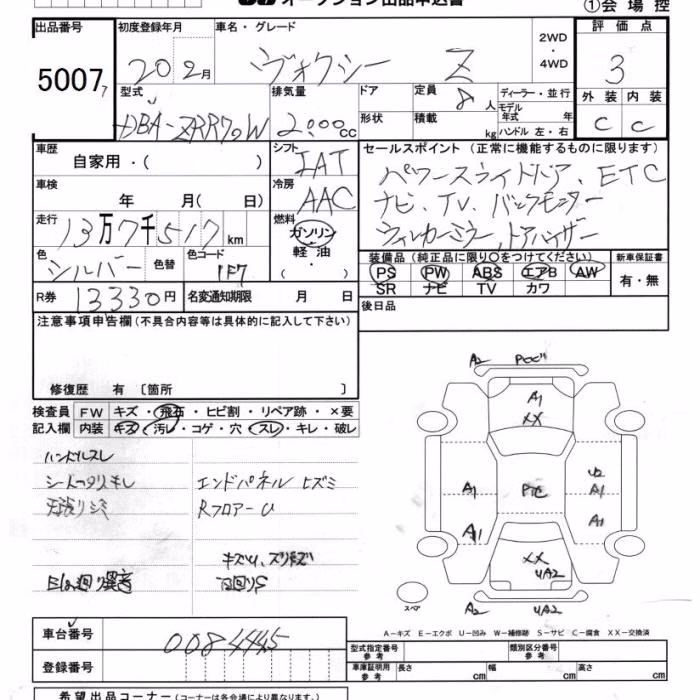 オークション出品申込書
①会場控
出品番号 初度登録年月 車名・グレード 評価点
5007 20 2月 ヴォクシー Z 2WD・4WD 3
型式 排気量 ドア 定員 8人 ディーラー・並行 外装 内装
DBA-ZRR70W 2000cc 形状 積載 kg モデル年式 年 ハンドル 左・右 C C
車歴 自家用・( ) シフト IAT セールスポイント(正常に機能するものに限ります)
車検 年 月( 日) 冷房 AAC パワースライドドア、ETC
走行 13万7千517km 燃料 ガソリン 軽油・ ナビ、TV、バックモニター
色 シルバー 色替 色コード 1F7 ウィンカーミラー、ドアバイザー
装備品(純正品に限り○をつけてください) 新車保証書
PS PW ABS エアB AW 有・無
SR ナビ TV カワ
R券 13330円 名変通知期限 月 日 後日品
注意事項申告欄(不具合内容等は具体的に記入して下さい)
修復歴 有 〔箇所 〕
検査員 FW キズ・飛石・ヒビ割・リペア跡・×要
記入欄 内装 キズ・汚レ・コゲ・穴・スレ・キレ・破レ
ハンドルスレ
エンドパネル ヒズミ
Rフロアー U
キズU、スリキズ
下回りS
A2
A1
XX
A1
U2
A1
A1
A1
XX
UA2
UA2
スペア
A-キズ E-エクボ U-凹み W-補修跡 S-サビ C-腐食 XX-交換済
車台番号 0084445
型式指定番号 参考 類別区分番号 参考
登録番号 車庫証明用 参考 長さ cm 幅 cm 高さ cm
希望出品コーナー(コーナーは各会場により異なります。)